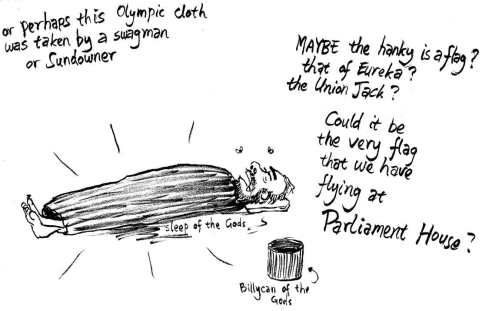 or perhaps this Olympic cloth
was taken by a swagman
or Sundowner
MAYBE the hanky is a flag?
that of Eureka?
the Union Jack?
Could it be
the very flag
that we have
flying at
Parliament House?
sleep of the Gods
Billycan of the
Gods